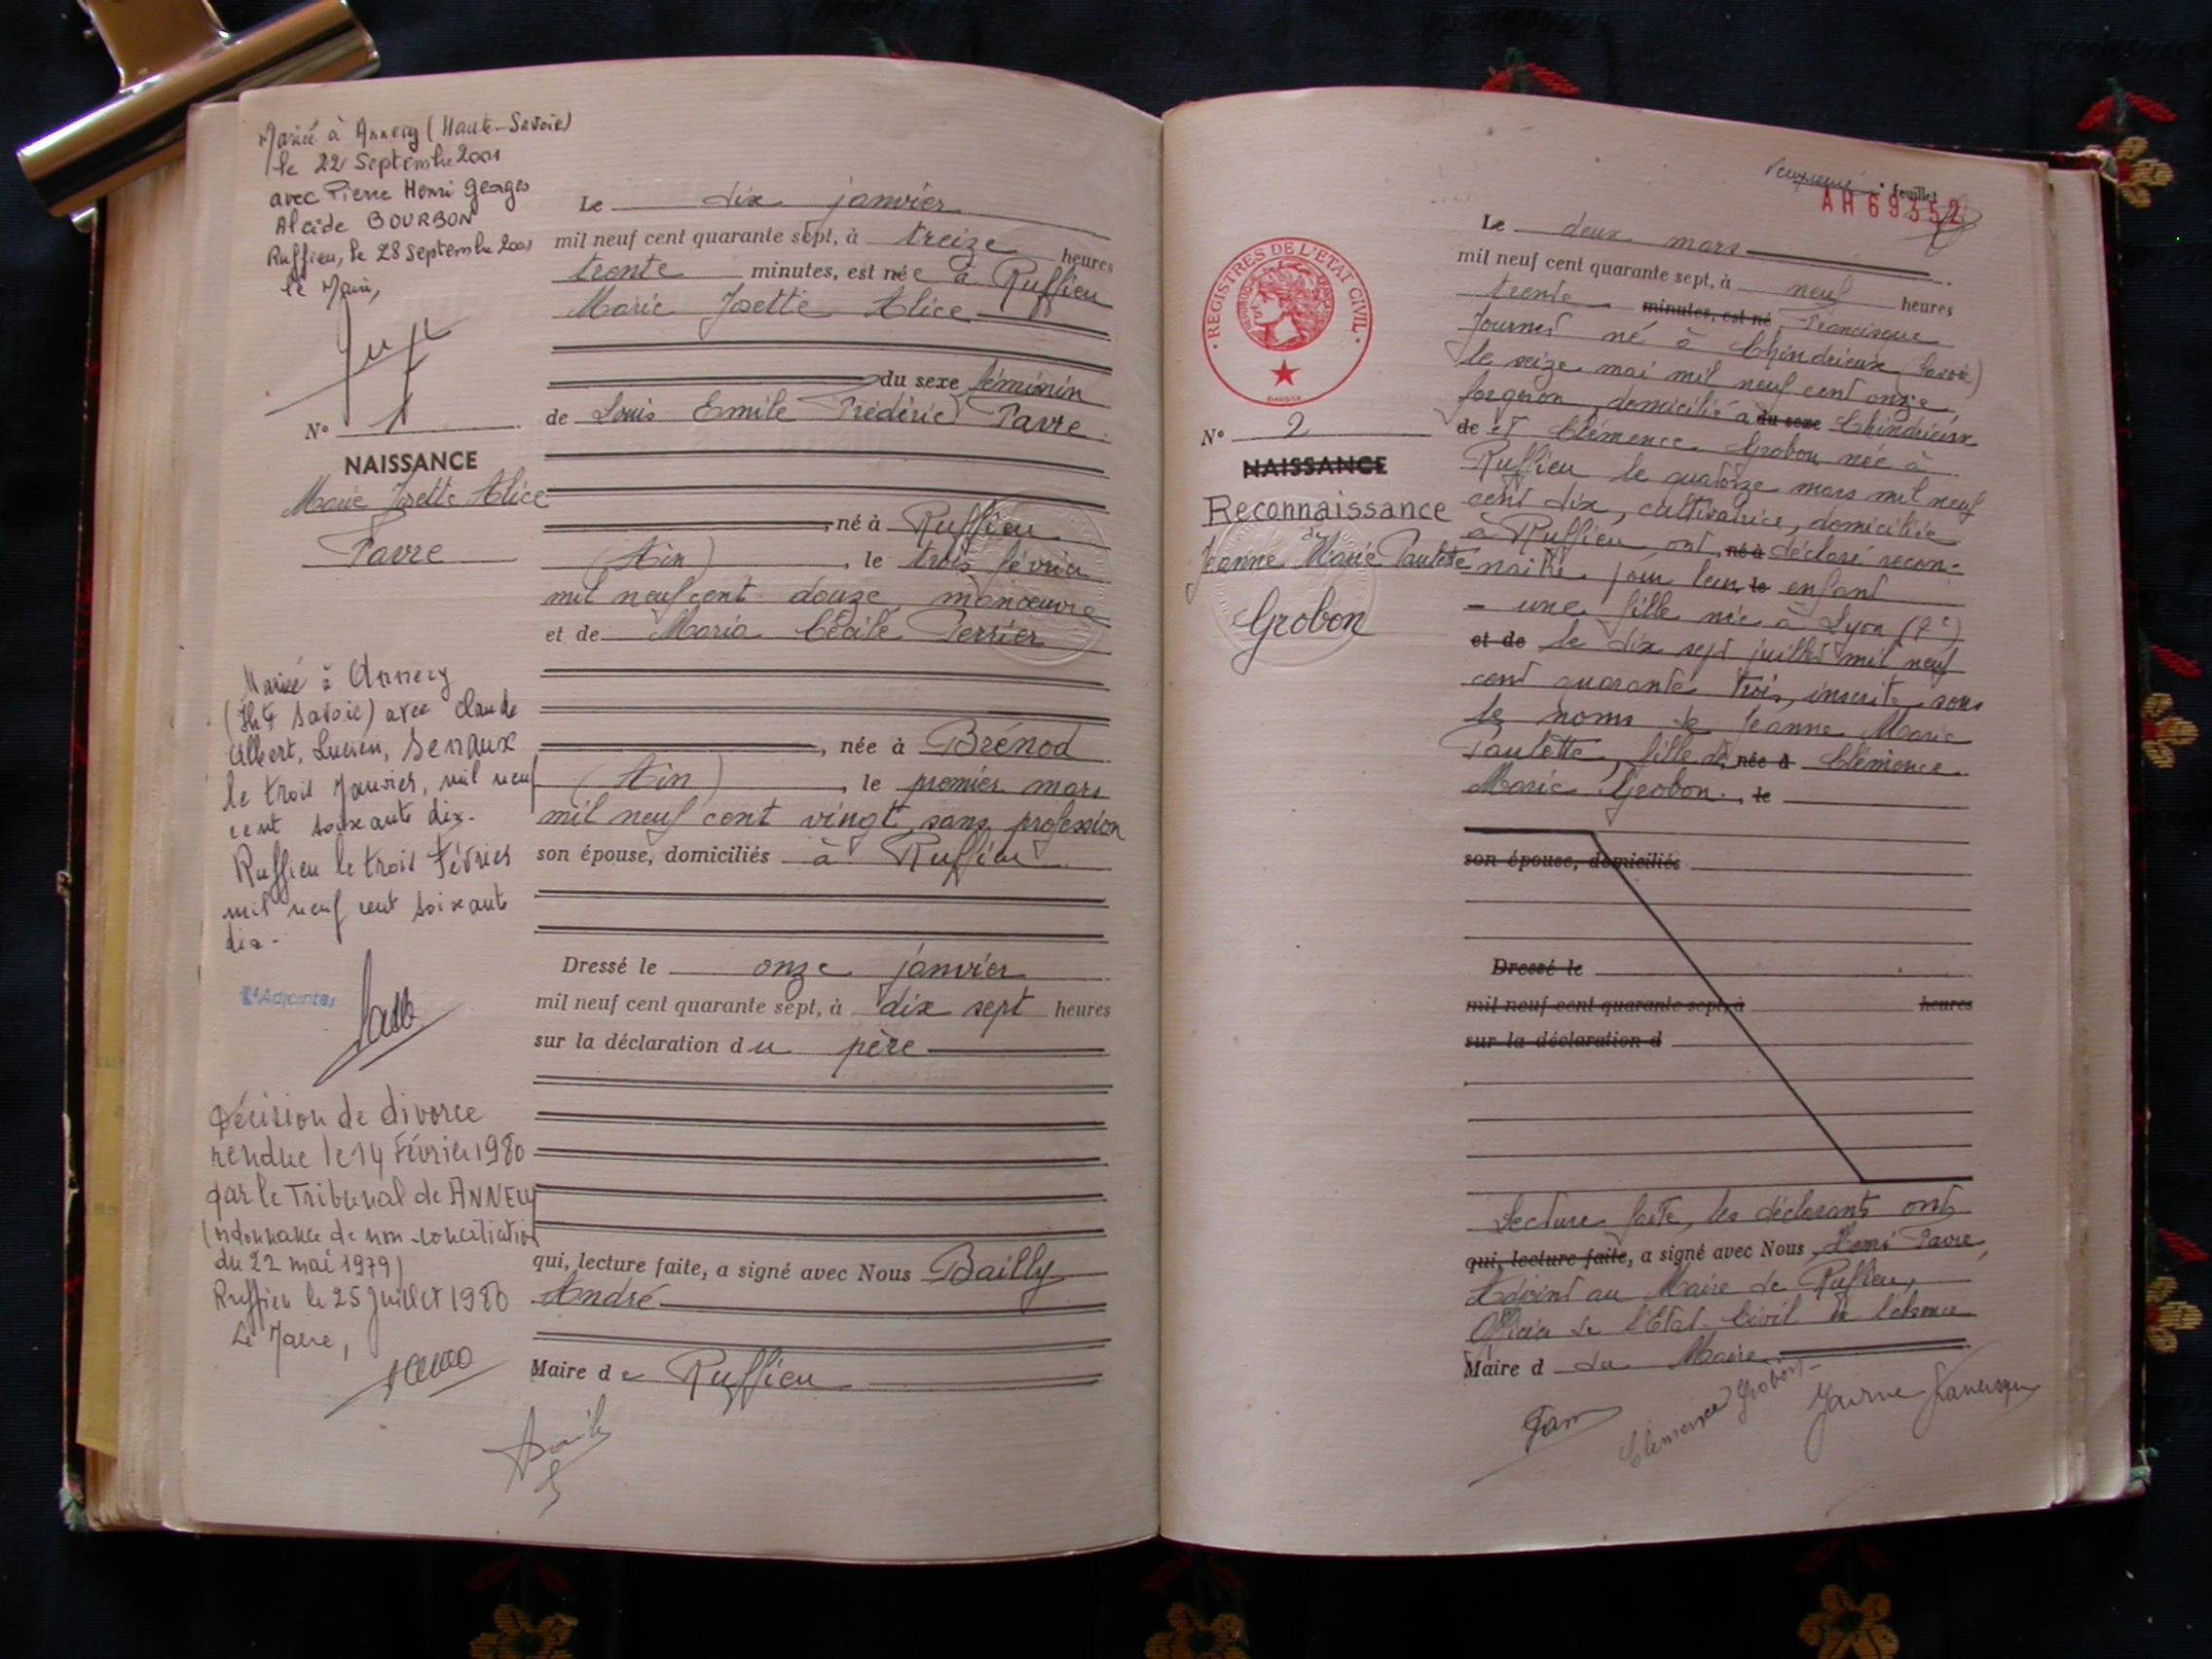 Mariée à Annecy (Haute-Savoie)
le 22 Septembre 2001
avec Pierre Henri Georges
Alcide BOURBON
Ruffieu, le 28 Septembre 2001
le Maire,
N° 1
NAISSANCE
Marie Josette Alice
Favre
Mariée à Annecy
(Hte Savoie) avec Claude
Albert, Lucien,
le trois Janvier, mil neuf
cent soixante dix.
Ruffieu le trois Février
mil neuf cent soixante
dix.
Adjointe,
Décision de divorce
rendue le 14 Février 1980
par le Tribunal de ANNECY
(ordonnance de non-conciliation
du 22 mai 1979)
Ruffieu le 25 Juillet 1980
Le Maire,
Le dix janvier
mil neuf cent quarante sept, à treize heures
trente minutes, est née à Ruffieu
Marie Josette Alice
du sexe féminin
de Louis Emile Frédéric Favre
né à Ruffieu
(Ain), le trois février
mil neuf cent douze manœuvre
et de Maria Cécile Perrier
, née à Brénod
(Ain), le premier mars
mil neuf cent vingt, sans profession
son épouse, domiciliés à Ruffieu
Dressé le onze janvier
mil neuf cent quarante sept, à dix sept heures
sur la déclaration du père
qui, lecture faite, a signé avec Nous Bailly
André
Maire de Ruffieu
feuillet
AH 69352
REGISTRES DE L'ETAT CIVIL
N° 2
NAISSANCE
Reconnaissance
de
Jeanne Marie Paulette
Grobon
Le deux mars
mil neuf cent quarante sept, à neuf heures
trente minutes, est né Francisque
Journet né à Chindrieux (Savoie)
le seize mai mil neuf cent onze,
forgeron, domicilié à du sexe Chindrieux
de et Clémence Grobon née à
Ruffieu le quatorze mars mil neuf
cent dix, cultivatrice, domiciliée
à Ruffieu, ont né à déclaré recon-
naître pour leur le enfant
- une fille née à Lyon
et de le dix sept juillet mil neuf
cent quarante trois, inscrite sous
les noms de Jeanne Marie
Paulette, fille de née à Clémence
Marie Grobon., le
son épouse, domiciliés
Dressé le
mil neuf cent quarante sept, à heures
sur la déclaration d
Lecture faite, les déclarants ont
qui, lecture faite, a signé avec Nous Favre,
Adjoint au Maire de Ruffieu,
Officier de l'Etat-Civil en l'absence
Maire d du Maire
Clémence Grobon
Francisque